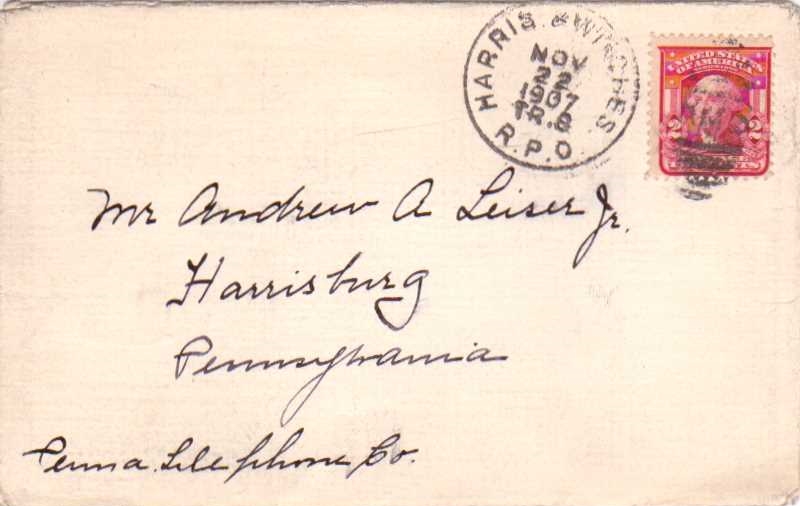 HARRIS. & WINCHES.
NOV
22
1907
TR. 8
R.P.O.
UNITED STATES
OF AMERICA
2
Mr Andrew A Leiser Jr.
Harrisburg
Pennsylvania
Penna. Telephone Co.